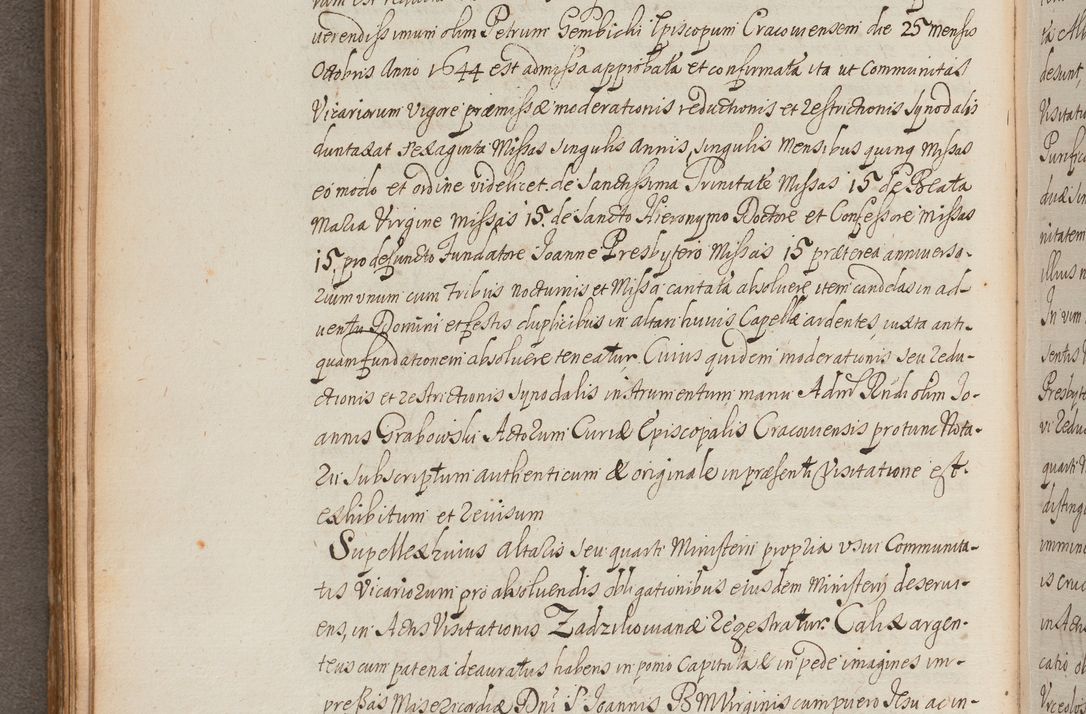 verendissimum olim Petrum Gembicki Episcopum Cracoviensem die 25 mensis
Octobris Anno 1644 est admissa approbata et confirmata ita ut Communitas
Vicariorum Vigore præmissæ moderationis reductionis et restrictionis synodalis
duntaxat sexaginta Missas singulis Annis, singulis Mensibus quinq Missas
eo modo et ordine videlicet de Sanctissima Trinitate Missas 15 de Beata
Maria Virgine Missas 15. de Sancto Hieronymo Doctore et Confessore Missas
15. pro defuncto Fundatore Joanne Presbytero Missas 15 præterea anniversa-
rium unum cum tribus nocturnis et Missa cantata absolvere item candelas in ad-
ventu Domini et festis duplicibus in altari huius Capellæ ardentes, iuxta anti-
quam fundationem absolvere teneatur. Cuius quidem moderationis seu redu-
ctionis et restrictionis synodalis instrumentum manu Admd Rndi olim Jo-
annis Grabowski Actorum Curiæ Episcopalis Cracoviensis protunc Nota-
rii subscriptum authenticum & originale in præsenti Visitatione est
exhibitum et revisum
Supellex huius altaris seu quarti Ministerii propria usui Communita-
tis Vicariorum pro absolvendis obligationibus eiusdem Ministerij deservi-
ens, in Actis Visitationis Zadzikowianæ regestratur. Calix argen-
teus cum patena deauratus habens in pomo Capitula & in pede imagines im-
pressas Misericordiæ Dni S Joannis B M Virginis cum puero Jesu ac in-